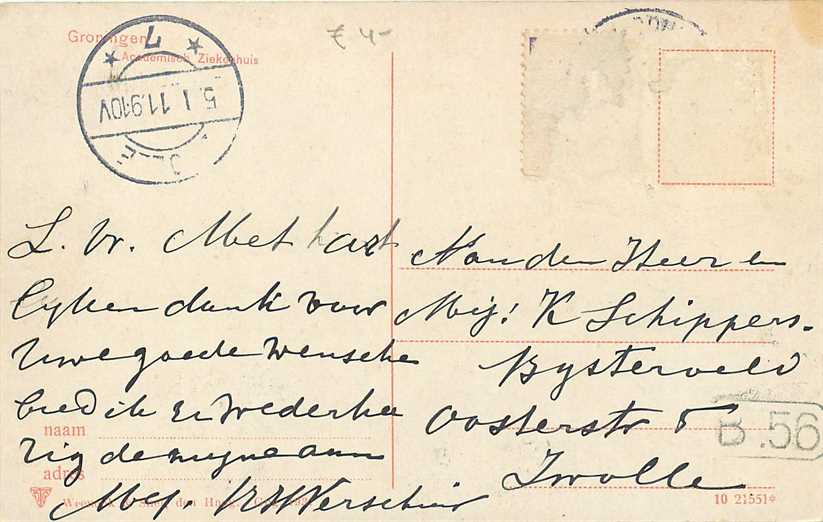 Groningen
Academisch Ziekenhuis
€ 4-
5.1.11.9-10V
7
L. Vr. Met hart
lyken dank voor
Uwe goede wensche
bied ik U wederkee
rig de myne aan
Mej.
Aan den Heer en
Mej: K Schippers.
Bysterveld
Oosterstr 5
Zwolle
B.56
naam
adres
10 21551*